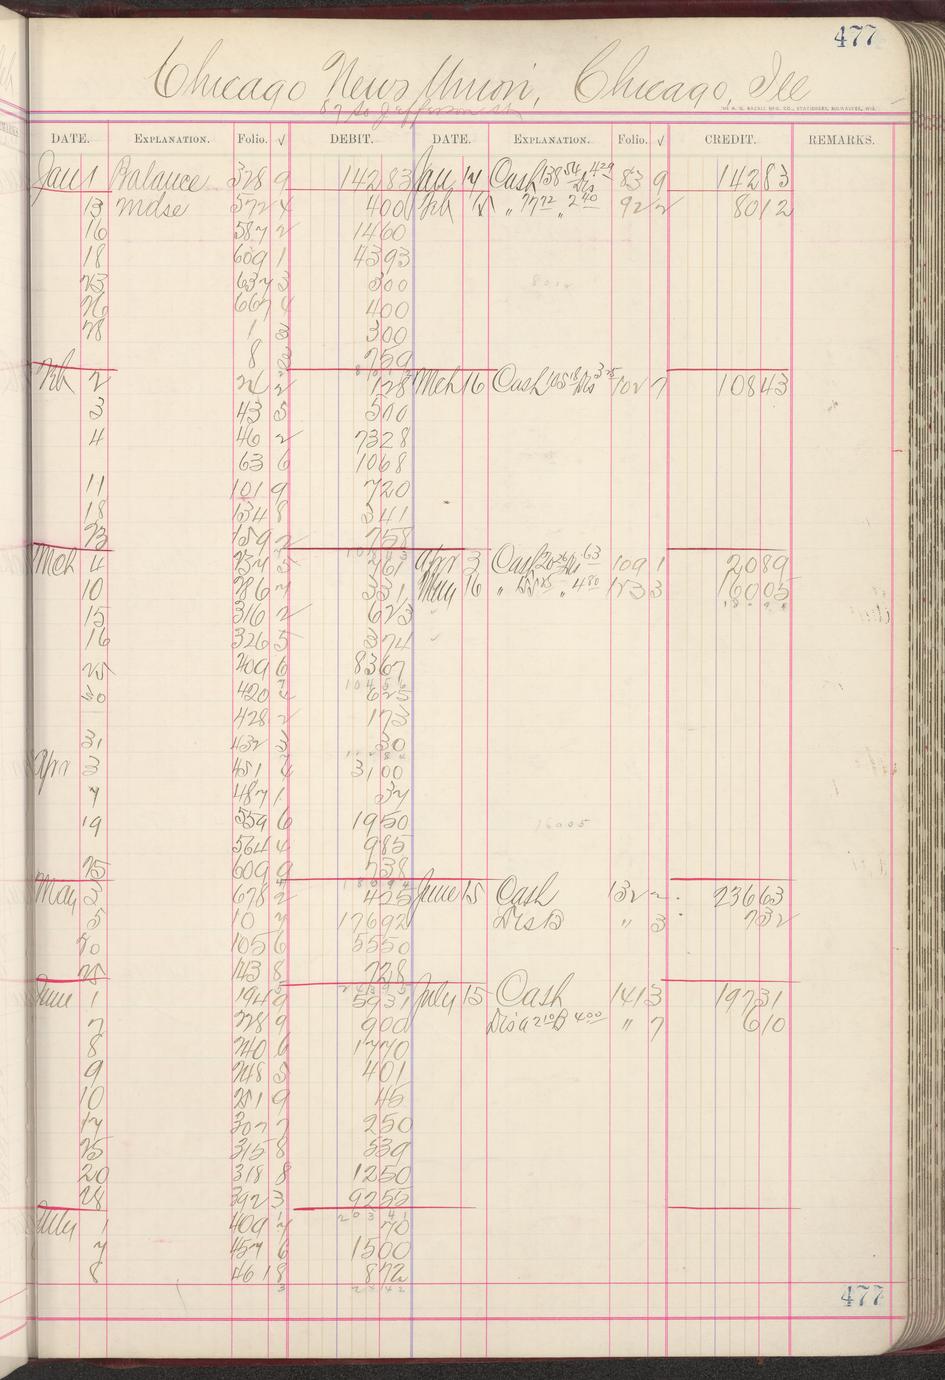 477
Chicago News Union, Chicago, Ill
87 So Jefferson St
DATE. EXPLANATION. Folio. √ DEBIT. DATE. EXPLANATION. Folio. √ CREDIT. REMARKS.
Jan 1 Balance 378 9 142 83 Jan 17 Cash 138 54 Dis 4 29 83 9 142 83
13 Mdse 572 4 4 00 Feb " 77 72 " 2 40 92 2 80 12
16 587 2 14 60
18 609 1 43 93
23 637 3 3 00
26 667 4 4 00
28 1 3 3 00
8 7 59
Feb 2 2 1 28 Mch 16 Cash 105 18 Dis 3 25 102 7 108 43
3 43 5 5 00
4 46 2 73 28
63 6 10 68
11 101 9 7 20
18 134 8 3 41
23 159 2 7 58
Mch 4 237 5 7 61 Apr 3 Cash 20 26 Dis 63 109 1 20 89
10 286 7 3 31 May 16 " " 4 80 123 3 160 05
15 316 2 6 23
16 326 5 3 74
25 409 6 83 67
104 5 6
30 420 6 25
428 2 1 73
31 432 3 30
Apr 3 451 4 31 00
7 487 1 37
19 559 6 19 50
160 05
564 4 9 85
25 609 9 7 38
180 94
May 3 678 2 4 25 June 15 Cash 132 2 236 63
5 10 7 176 92 Dis B " 3 7 32
20 105 6 55 50
25 143 8 7 28
June 1 194 9 59 31 July 15 Cash 141 3 197 31
7 228 9 9 00 Dis a 2 10 B 4 00 " 7 6 10
8 240 6 17 70
9 248 5 4 01
10 251 9 45
17 307 7 2 50
25 315 8 5 39
20 318 8 12 50
28 392 3 92 55
203 41
July 1 409 7 70
7 457 6 15 00
8 461 8 8 72
477